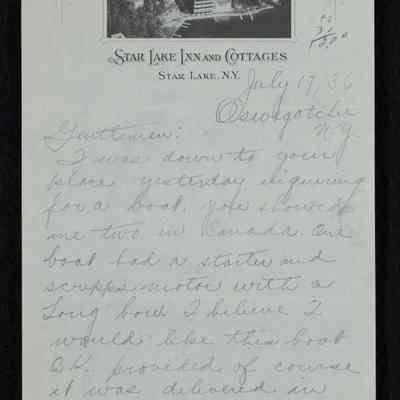 STAR LAKE INN AND COTTAGES
STAR LAKE, N.Y.
July 17, 36
Oswegatchie
N.Y.
Gentlemen:
I was down to your
place yesterday figuring
for a boat. you showed
me two in Canada. One
boat had a starter and
scripps motor with a
Long bow I believe I
would like this boat
O.K. provided of course
it was delivered in